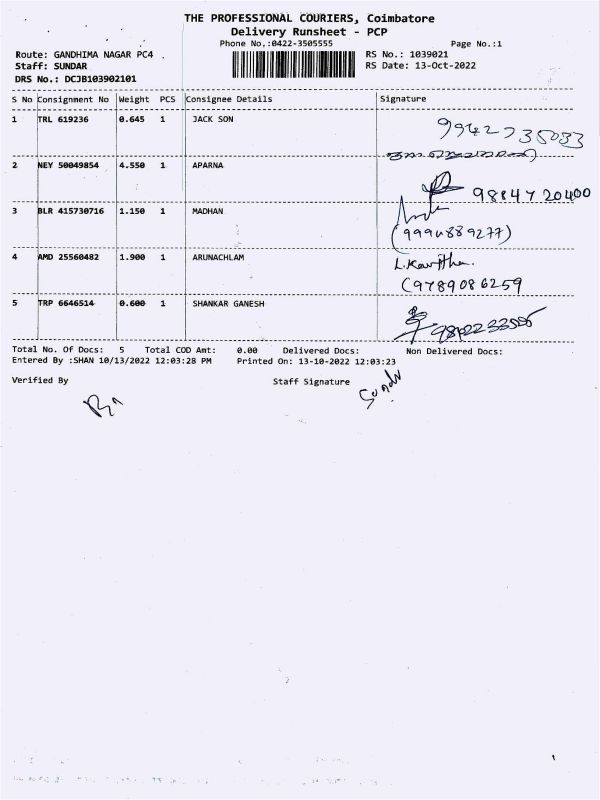 THE PROFESSIONAL COURIERS, Coimbatore
Delivery Runsheet - PCP
Phone No.:0422-3505555 Page No.:1
Route: GANDHIMA NAGAR PC4 RS No.: 1039021
Staff: SUNDAR RS Date: 13-Oct-2022
DRS No.: DCJB103902101
S No Consignment No Weight PCS Consignee Details Signature
1 TRL 619236 0.645 1 JACK SON
9942735033
2 NEY 50049854 4.550 1 APARNA
9884720400
3 BLR 415730716 1.150 1 MADHAN
(9994889277)
4 AMD 25560482 1.900 1 ARUNACHLAM L.Kavitha.
(9789086259
5 TRP 6646514 0.600 1 SHANKAR GANESH
Total No. Of Docs: 5 Total COD Amt: 0.00 Delivered Docs: Non Delivered Docs:
Entered By :SHAN 10/13/2022 12:03:28 PM Printed On: 13-10-2022 12:03:23
Verified By Staff Signature Sundr